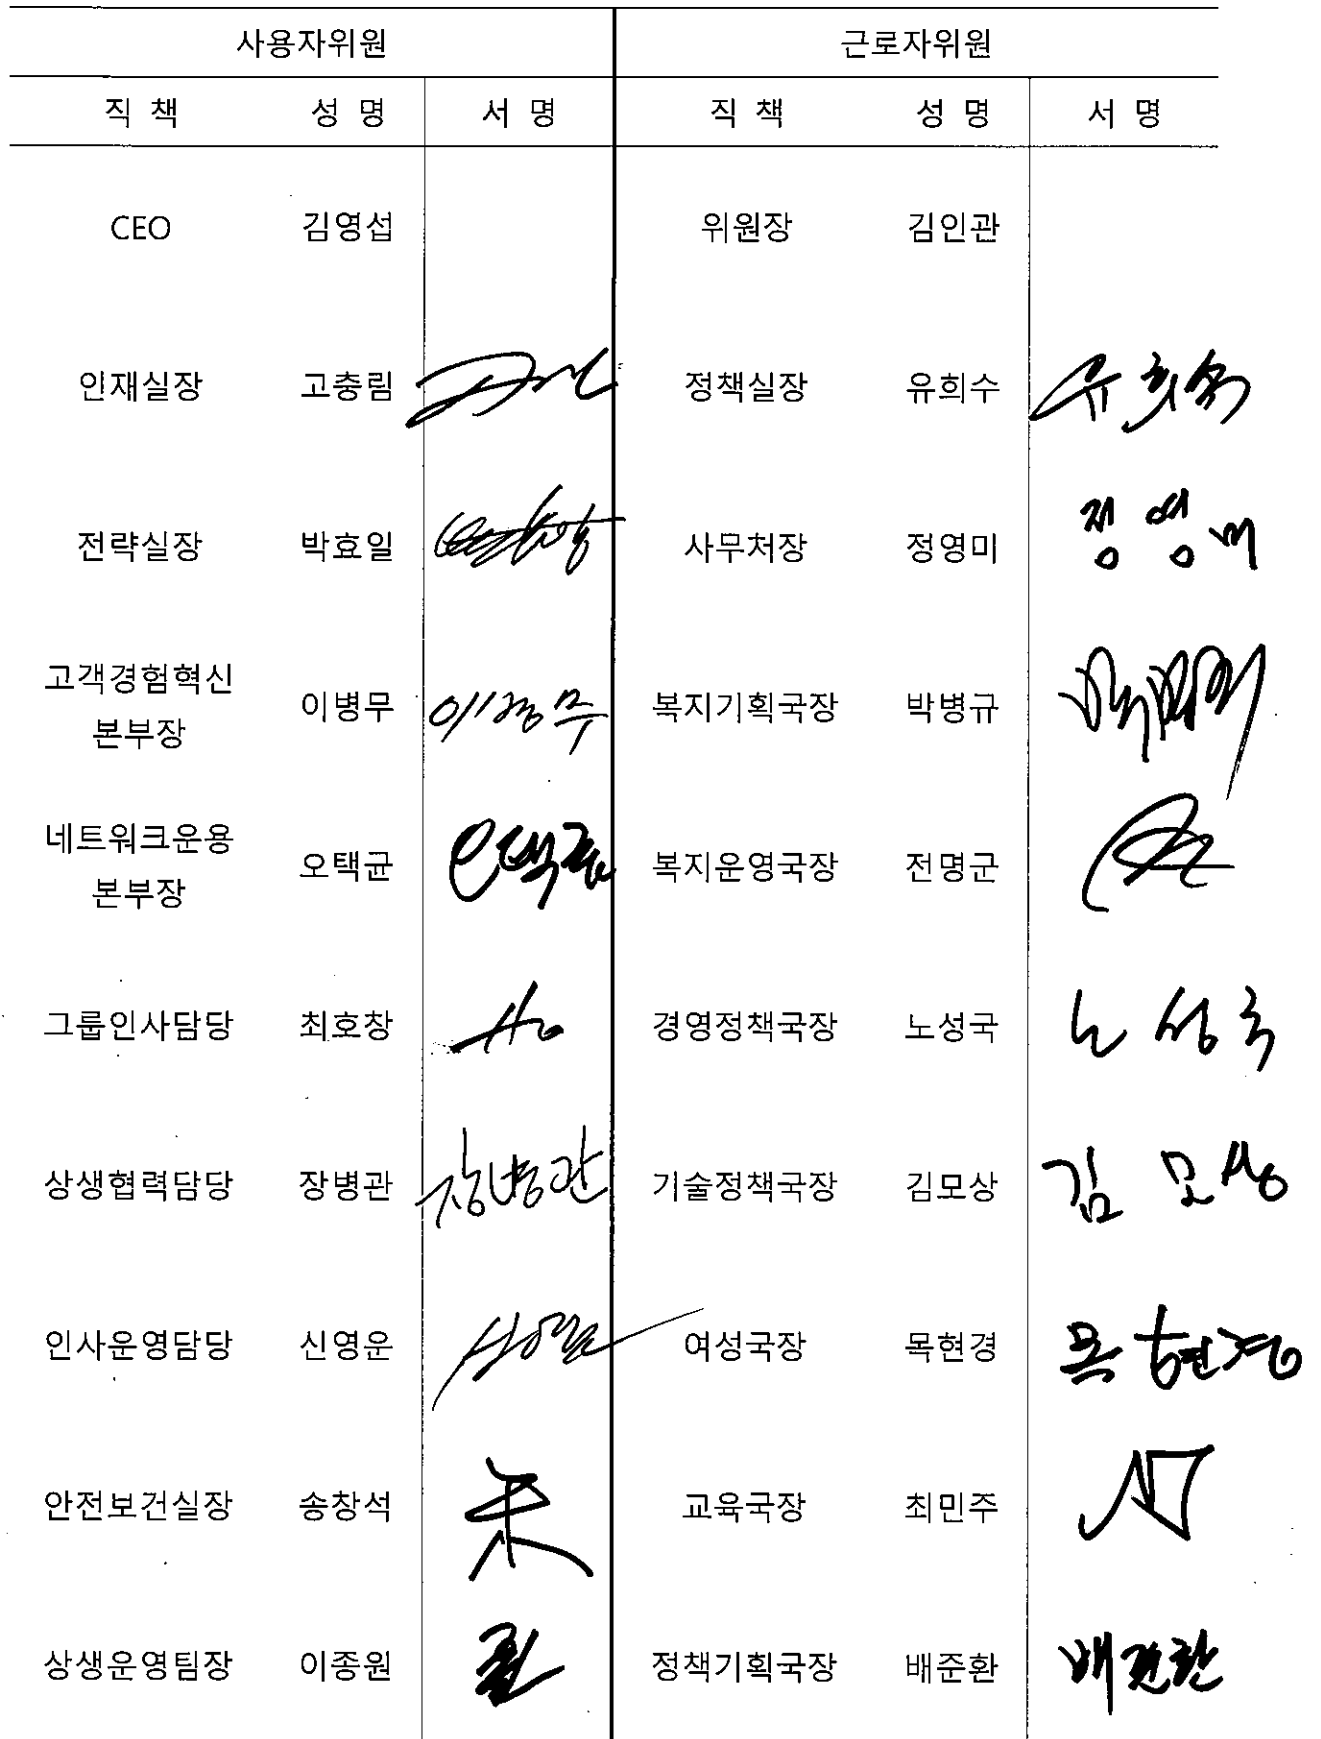 사용자위원 근로자위원
직 책 성 명 서 명 직 책 성 명 서 명
CEO 김영섭 위원장 김인관
인재실장 고충림 정책실장 유희수 유희수
전략실장 박효일 사무처장 정영미 정영미
고객경험혁신
이병무 이병무 복지기획국장 박병규
본부장
네트워크운용
오택균 오택균 복지운영국장 전명군
본부장
그룹인사담당 최호창 경영정책국장 노성국 노성국
상생협력담당 장병관 장병관 기술정책국장 김모상 김모상
인사운영담당 신영운 여성국장 목현경 목현경
안전보건실장 송창석 교육국장 최민주
상생운영팀장 이종원 정책기획국장 배준환 배준환